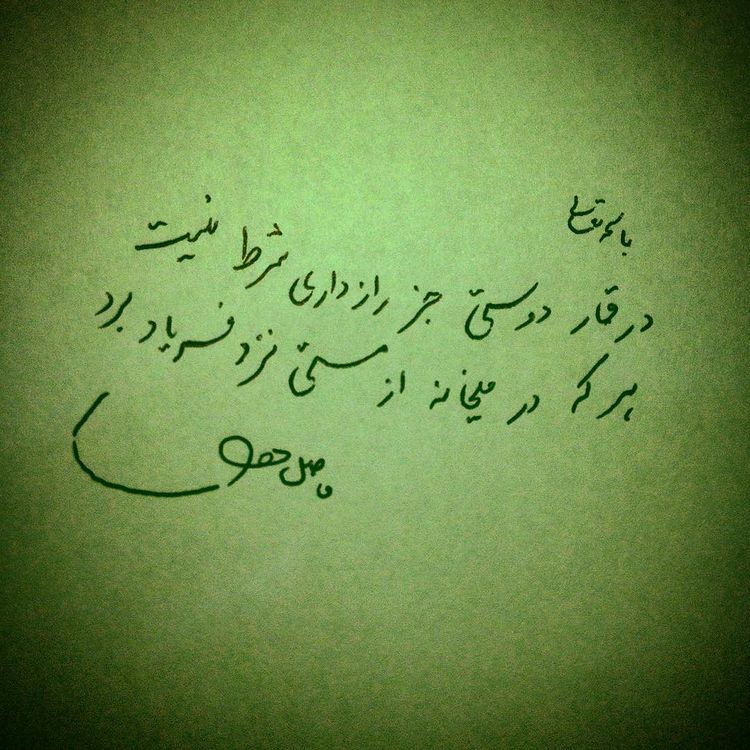 باسمه تعالی
در قمار دوستی جز رازداری شرط نیست
هر که در میخانه از مستی نزد فریاد برد